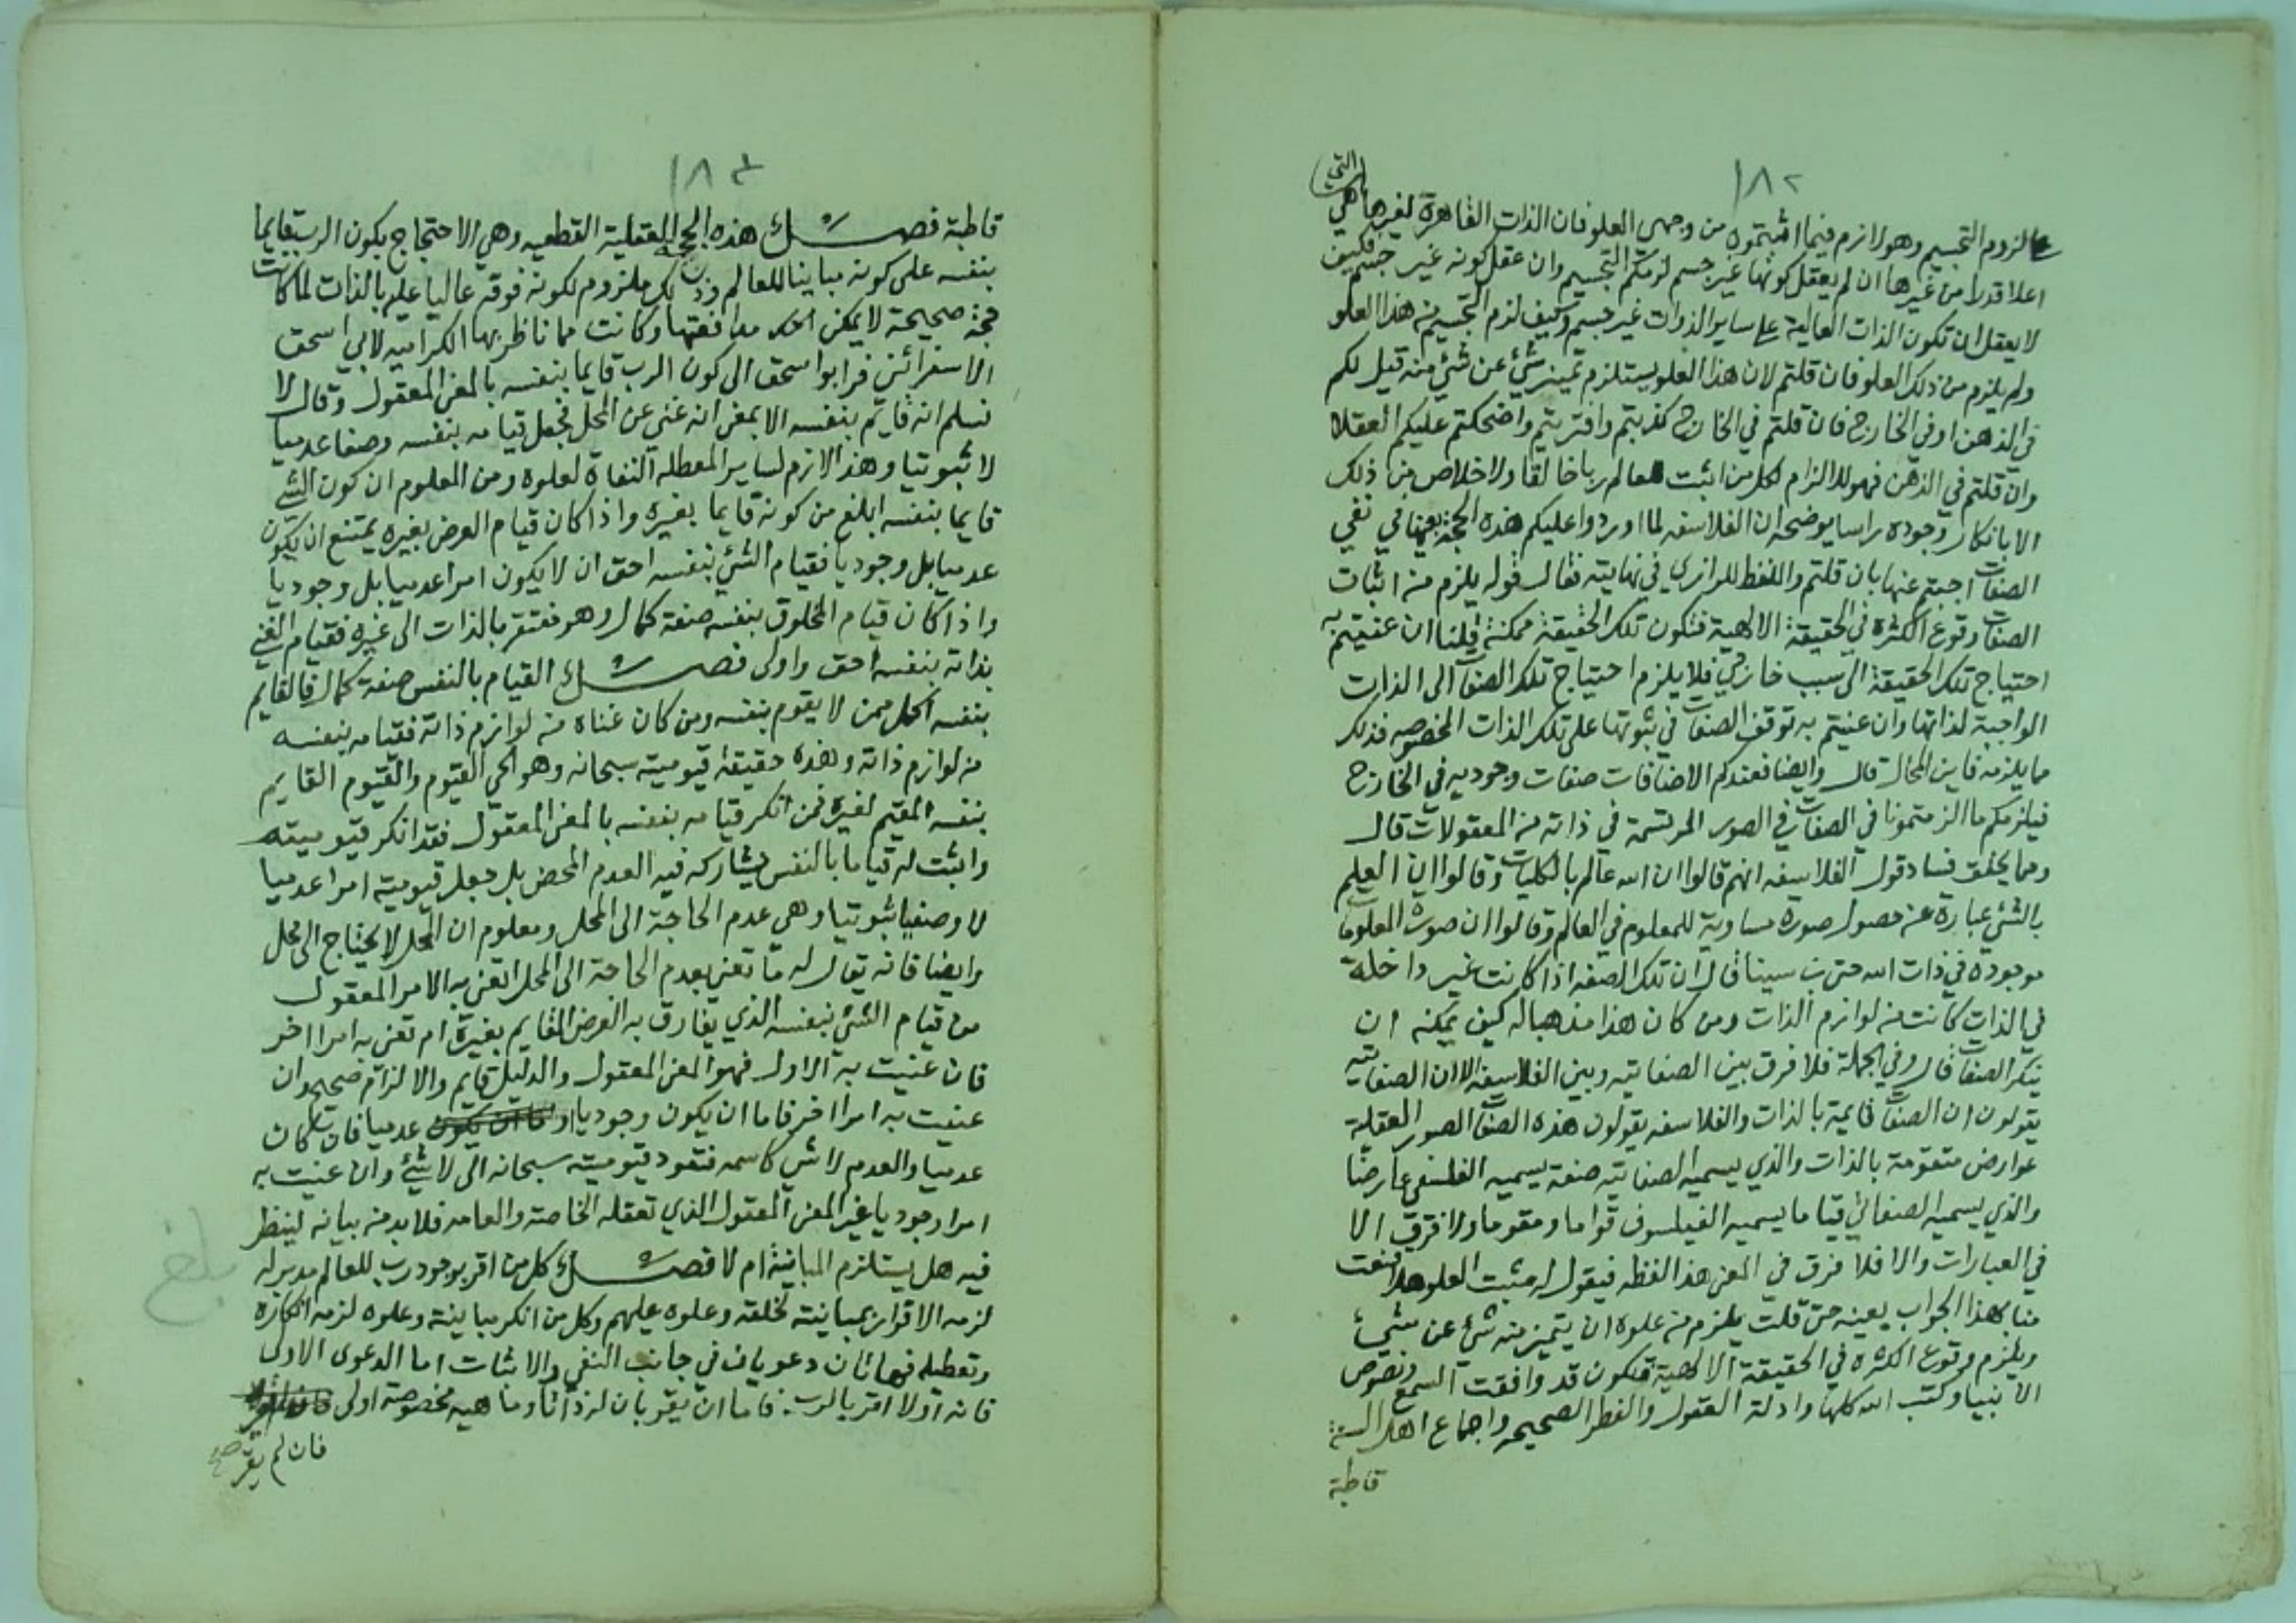 ١٨٢
التي
لزوم التجسيم وهو لازم فيما اثبتموه من وجهى العلو فان الذات القاهرة لغيرها هي
اعلا قدرا من غيرها ان لم يعقل كونها غير جسم لزمكم التجسيم وان عقل كونه غير جسم فكيف
لا يعقل ان تكون الذات العالية على ساير الذوات غير جسم وكيف لزم التجسيم من هذا العلو
ولم يلزم من ذلك العلو فان قلتم لان هذا العلو يستلزم تميز شئ عن شئ منه قيل لكم
في الذهن او في الخارج فان قلتم في الخارج كذبتم وافتريتم واضحكتم عليكم العقلا
وان قلتم في الذهن فهو للالزام لكل من اثبت للعالم ربا خالقا ولا خلاص من ذلك
الا بانكار وجوده راسا يوضحه ان الفلاسفه لما اوردوا عليكم هذه الحجة بعينها في نفي
الصفات اجبتم عنها بان قلتم واللفظ للرازي في نهايته فقال قوله يلزم من اثبات
الصفات وقوع الكثرة في الحقيقة الالهية فتكون تلك الحقيقة ممكنة قلنا ان عنيتم به
احتياج تلك الحقيقة الى سبب خارجي فلا يلزم احتياج تلك الصفات الى الذات
الواجبة لذاتها وان عنيتم به توقف الصفات في ثبوتها على تلك الذات المخصوصه فذلك
مما يلزمه فاين المحال قال وايضا فعندكم الاضافات صفات وجوديه في الخارج
فيلزمكم ما الزمتمونا في الصفات في الصور المرتسمة في ذاته من المعقولات قال
ومما يحقق فساد قول الفلاسفه انهم قالوا ان الله عالم بالكليات وقالوا ان العلم
بالشئ عبارة عن حصول صورة مساوية للمعلوم في العالم وقالوا ان صورة المعلومات
موجودة في ذات الله حتى بن سينا قال ان تلك الصفه اذا كانت غير داخلة
في الذات كانت من لوازم الذات ومن كان هذا مذهبا له كيف يمكنه ان
ينكر الصفات قال وفي الجملة فلا فرق بين الصفاتيه وبين الفلاسفه الا ان الصفاتيه
يقولون ان الصفات قايمة بالذات والفلاسفه يقولون هذه الصفات الصور العقلية
عوارض متقومة بالذات والذي يسميه الصفاتيه صفة يسميه الفلسفي عارضا
والذي يسميه الصفاتي قياما يسميه الفيلسوف قواما ومقوما ولا فرق الا
في العبارات والا فلا فرق في المعنى هذا لفظه فيقول له مثبت العلو هلا قنعت
منا بهذا الجواب بعينه حتى قلت يلزم من علوه ان يتميز منه شئ عن شئ
ويلزم وقوع الكثرة في الحقيقة الالهية فتكون قد وافقت السمع ونصوص
الانبيا وكتب الله كلها وادلة العقول والفطر الصحيحه واجماع اهل السنة
قاطبة
١٨٣
قاطبة فصل هذه الحجة العقلية القطعيه وهي الاحتجاج بكون الرب قايما
بنفسه على كونه مباينا للعالم وذلك ملزوم لكونه فوقه عاليا عليه بالذات لما كانت
حجة صحيحة لا يمكن مدافعتها وكانت مما ناظر بها الكراميه لابي اسحق
الاسفرائني فر ابو اسحق الى كون الرب قايما بنفسه بالمعنى المعقول وقال لا
نسلم انه قايم بنفسه الا بمعنى انه غني عن المحل فجعل قيامه بنفسه وصفا عدميا
لا ثبوتيا وهذا لازم لساير المعطله النفاة لعلوه ومن المعلوم ان كون الشئ
قايما بنفسه ابلغ من كونه قايما بغيره واذا كان قيام العرض بغيره يمتنع ان يكون
عدميا بل وجوديا فقيام الشئ بنفسه احق ان لا يكون امرا عدميا بل وجوديا
واذا كان قيام المخلوق بنفسه صفة كمال وهو مفتقر بالذات الى غيره فقيام الغني
بذاته بنفسه احق واولى فصل القيام بالنفس صفة كمال فالقايم
بنفسه اكمل ممن لا يقوم بنفسه ومن كان غناه من لوازم ذاته فقيامه بنفسه
من لوازم ذاته وهذه حقيقة قيوميته سبحانه وهو الحي القيوم والقيوم القايم
بنفسه المقيم لغيره فمن انكر قيامه بنفسه بالمعنى المعقول فقد انكر قيوميته
واثبت له قياما بالنفس يشاركه فيه العدم المحض بل جعل قيوميته امرا عدميا
لا وصفيا ثبوتيا وهى عدم الحاجة الى المحل ومعلوم ان المحل لا يحتاج الى محل
وايضا فانه يقال له ما تعني بعدم الحاجة الى المحل اتعني به الامر المعقول
من قيام الشئ بنفسه الذي يفارق به العرض القايم بغيره ام تعني به امرا اخر
فان عنيت به الاول فهو المعنى المعقول والدليل قايم والالزام صحيح وان
عنيت به امرا اخر فاما ان يكون وجوديا او عدميا فان كان
عدميا والعدم لا شئ كاسمه فتعود قيوميته سبحانه الى لا شئ وان عنيت به
امرا وجوديا غير المعنى المعقول الذي تعقله الخاصة والعامه فلا بد من بيانه لينظر
فيه هل يستلزم المباينة ام لا فصل كل من اقر بوجود رب للعالم مدبر له
لزمه الاقرار بمباينته لخلقه وعلوه عليهم وكل من انكر مباينة وعلوه لزمه انكاره
وتعطيله فهاتان دعويان في جانب النفي والاثبات اما الدعوى الاولى
فانه اولا اقر بالرب فاما ان يقر بان له ذاتا وماهيه مخصوصة اولى
فان لم يقر صح
بلغ